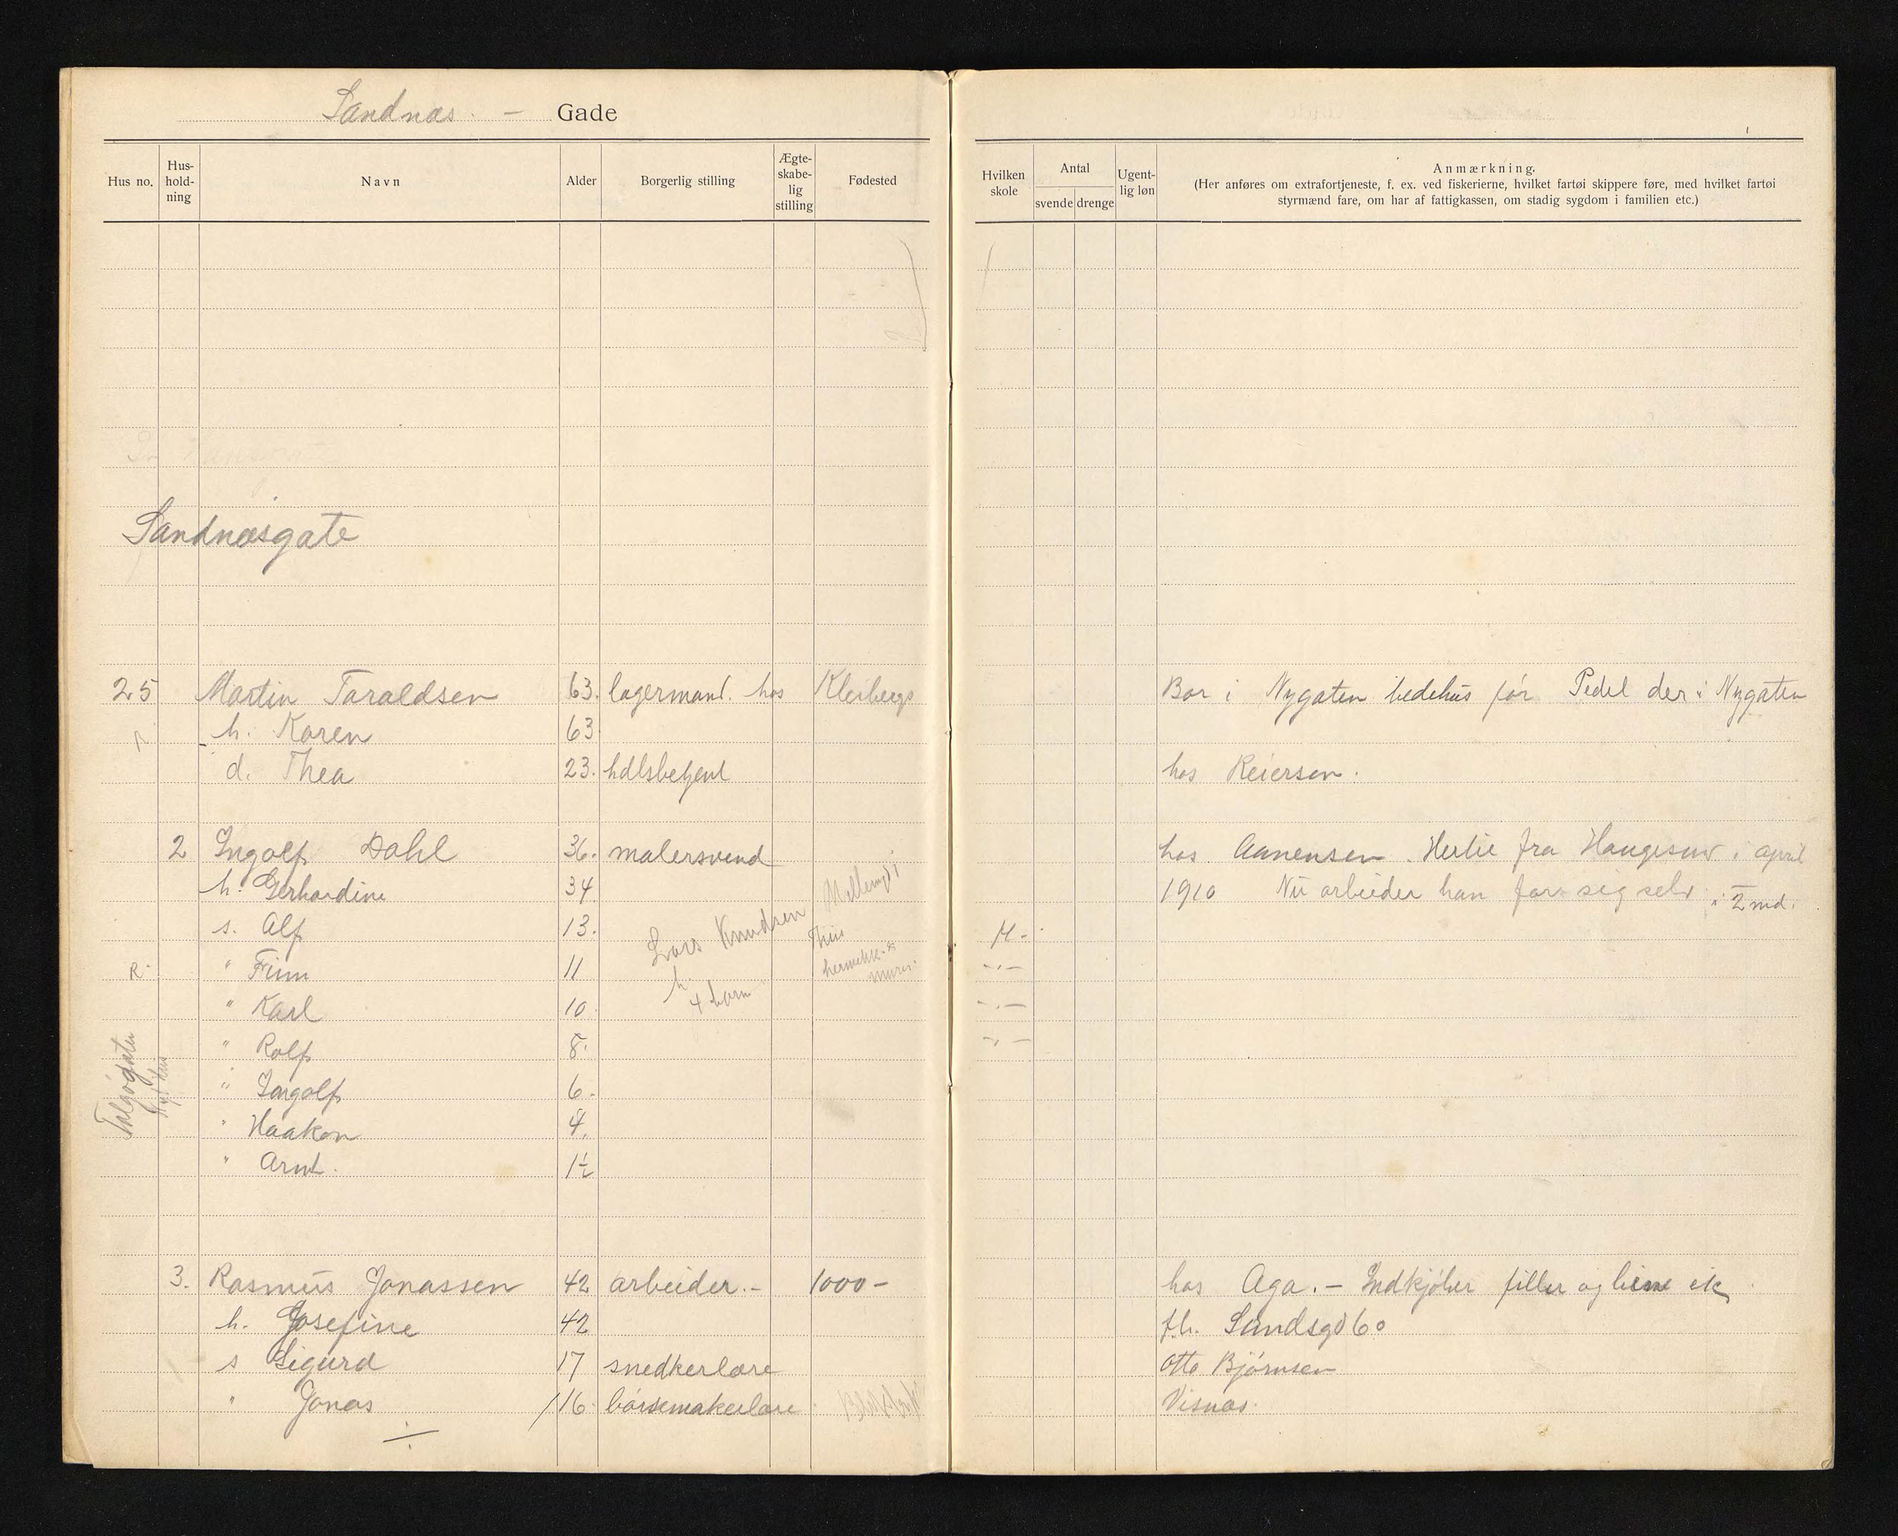 Sandnæs - Gade
Hus no. Hus-hold-ning Navn Alder Borgerlig stilling Ægte-skabe-lig stilling Fødested Hvilken skole Antal svende drenge Ugent-lig løn Anmærkning.
(Her anføres om extrafortjeneste, f. ex. ved fiskerierne, hvilket fartøi skippere føre, med hvilket fartøi
styrmænd fare, om har af fattigkassen, om stadig sygdom i familien etc.)
Sandnæsgate
25 Martin Taraldsen 63. lagermand. hos Kleibergs Bor i Nygaten bedehus før Pedel der i Nygaten
h. Karen 63
d. Thea 23. hdlsbetjent hos Reiersen.
2 Ingolf Dahl 36. malersvend hos Aanensen. Hertil fra Haugesund i april
h. Gerhardine 34 1910 Nu arbeider han for sig selv i 2 md.
s. Alf 13. H.-
R. " Finn 11 -"-
" Karl 10 -"-
" Rolf 8. -"-
" Ingolf 6.
" Haakon 4.
" Arnt. 1½
Lars Knudsen
h
4 barn
3. Rasmus Jonassen 42 arbeider.- 1000- hos Aga. - Indkjøber filler og
h. Josefine 42 f.h. Sundsgd 60
s Sigurd 17 snedkerlære Otto Bjørnsen
" Jonas /16. børsemakerlære Visnæs.